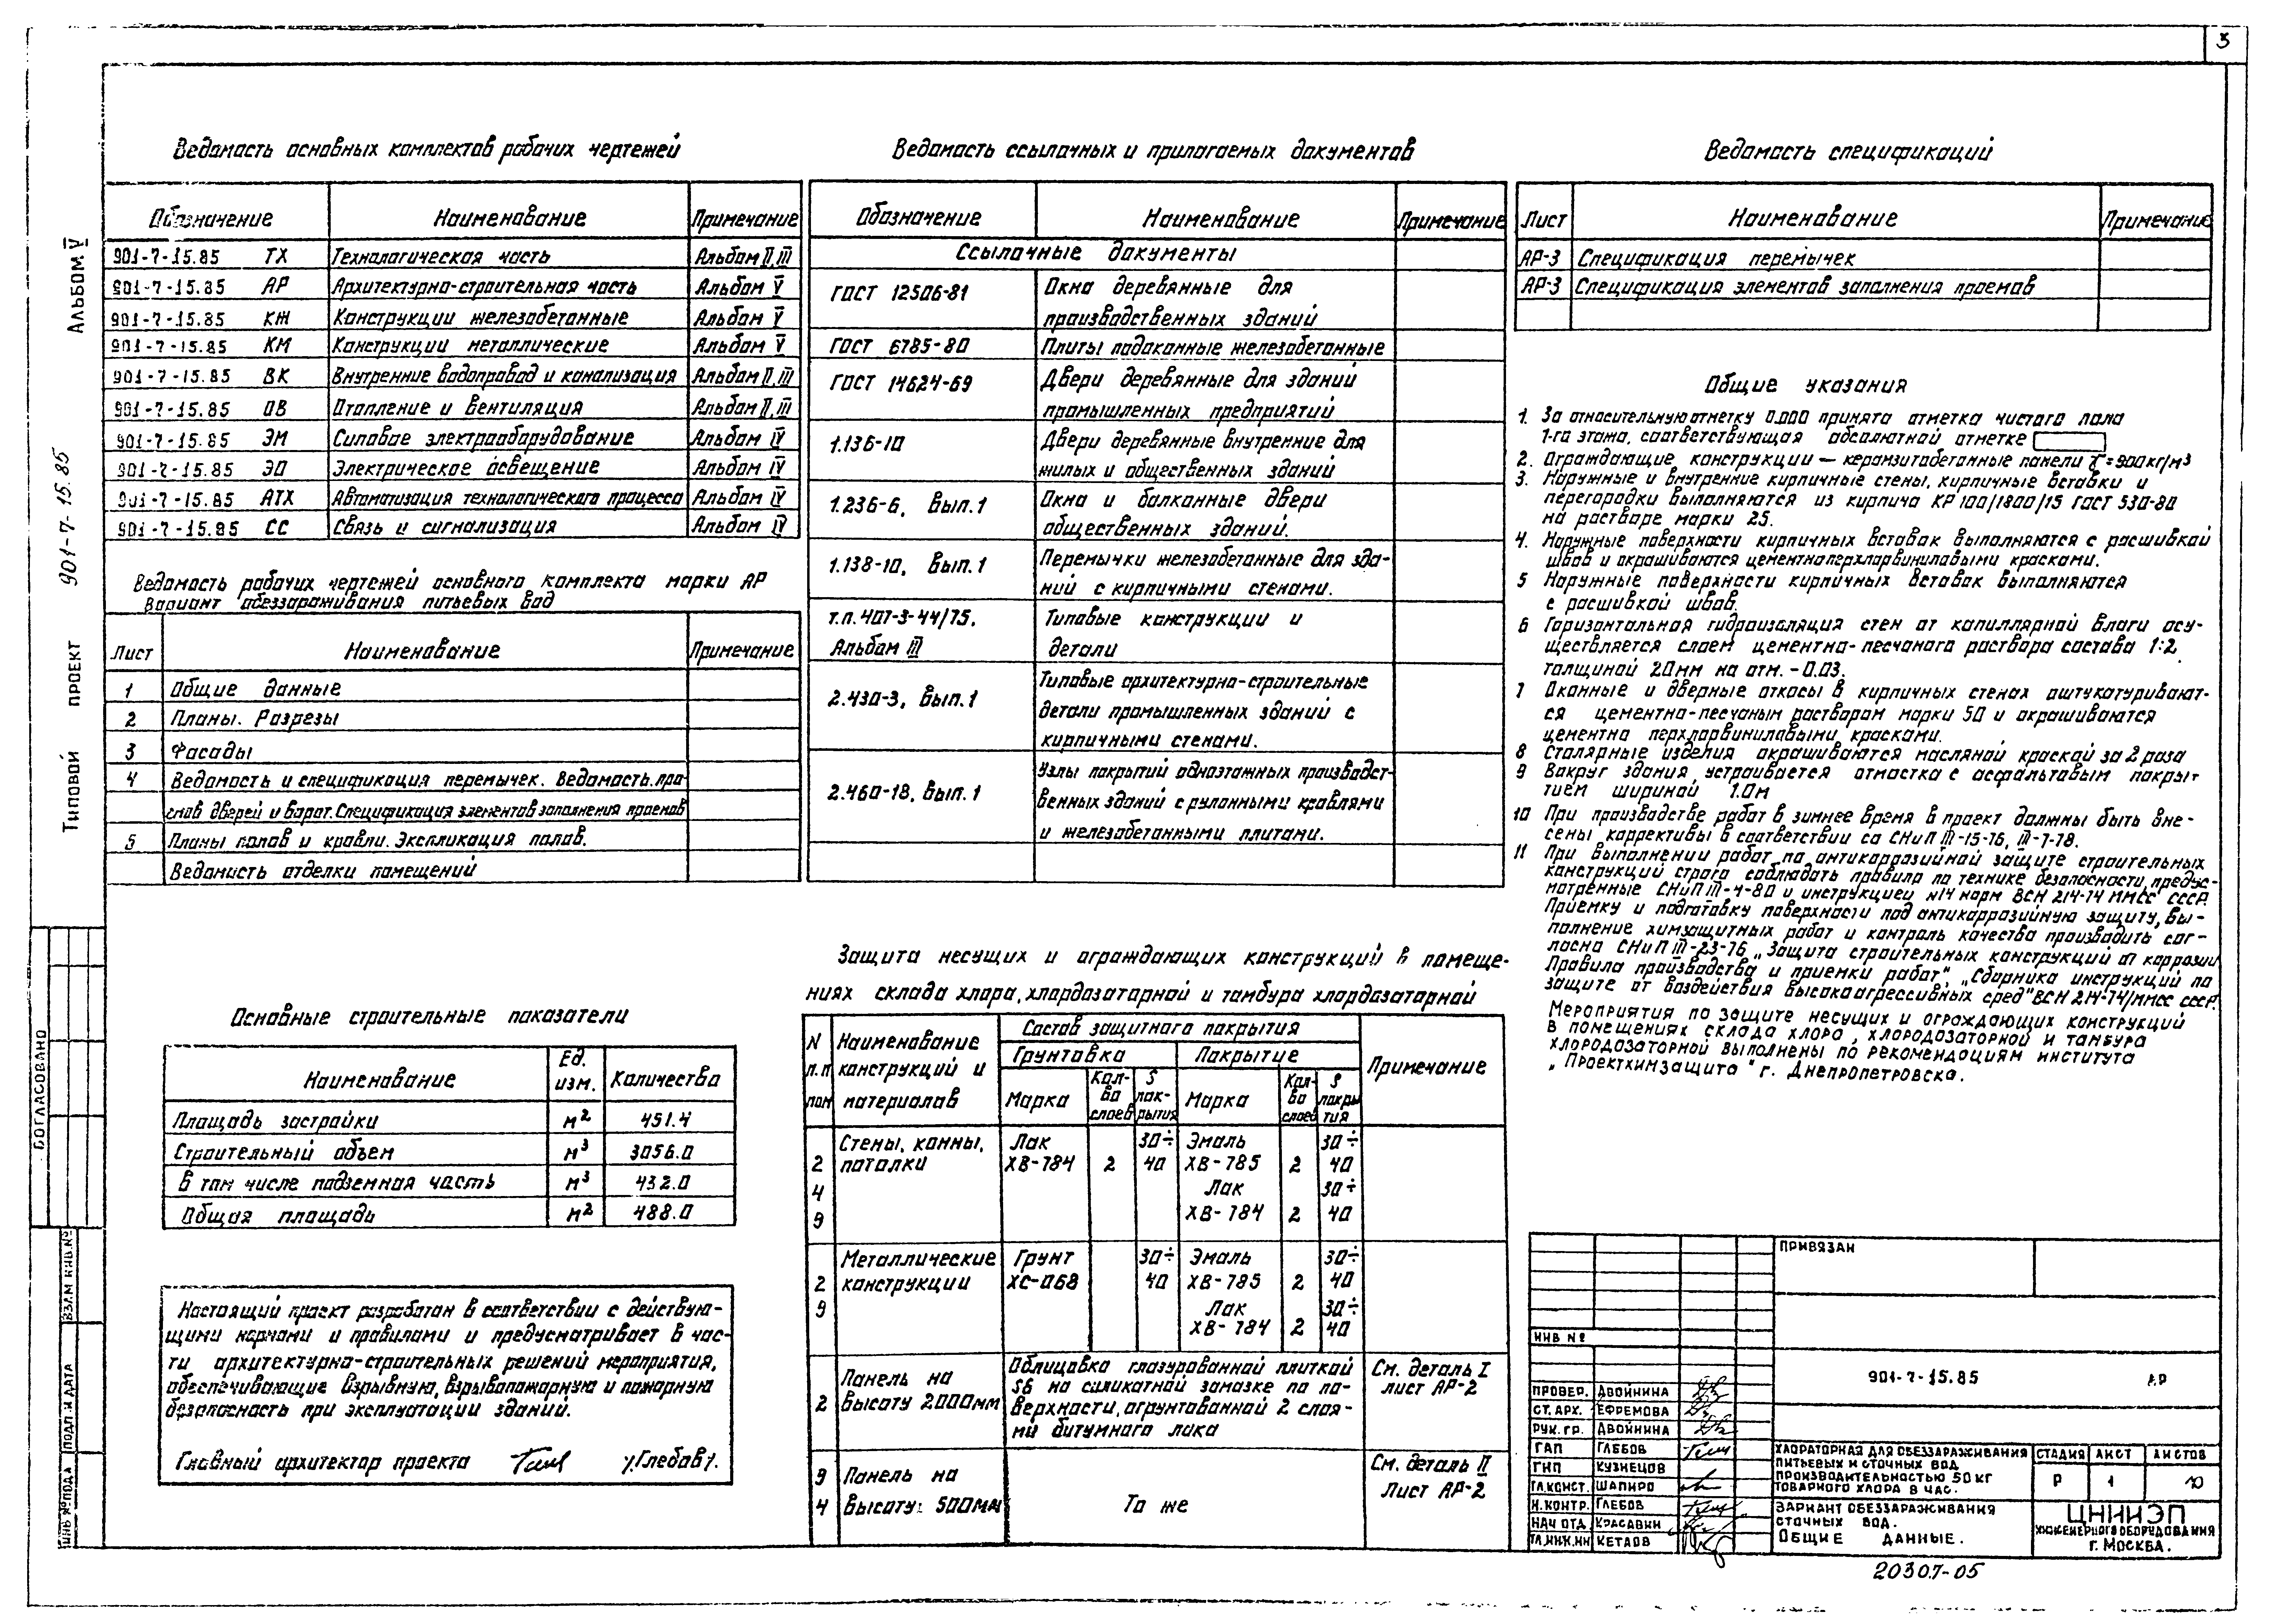 3
Альбом V
Типовой проект 901-7-15.85
Ведомость основных комплектов рабочих чертежей
Обозначение Наименование Примечание
901-7-15.85 ТХ Технологическая часть Альбом II, III
901-7-15.85 АР Архитектурно-строительная часть Альбом V
901-7-15.85 КЖ Конструкции железобетонные Альбом V
901-7-15.85 КМ Конструкции металлические Альбом V
901-7-15.85 ВК Внутренние водопровод и канализация Альбом II, III
901-7-15.85 ОВ Отопление и вентиляция Альбом II, III
901-7-15.85 ЭМ Силовое электрооборудование Альбом IV
901-7-15.85 ЭО Электрическое освещение Альбом IV
901-7-15.85 АТХ Автоматизация технологического процесса Альбом IV
901-7-15.85 СС Связь и сигнализация Альбом IV
Ведомость рабочих чертежей основного комплекта марки АР
Вариант обеззараживания питьевых вод
Лист Наименование Примечание
1 Общие данные
2 Планы. Разрезы
3 Фасады
4 Ведомость и спецификация перемычек. Ведомость про-
емов дверей и ворот. Спецификация элементов заполнения проемов
5 Планы полов и кровли. Экспликация полов.
Ведомость отделки помещений
Основные строительные показатели
Наименование Ед. изм. Количество
Площадь застройки м2 451.4
Строительный объем м3 3056.0
в том числе подземная часть м3 432.0
Общая площадь м2 488.0
Настоящий проект разработан в соответствии с действую-
щими нормами и правилами и предусматривает в час-
ти архитектурно-строительных решений мероприятия,
обеспечивающие взрывную, взрывопожарную и пожарную
безопасность при эксплуатации зданий.
Главный архитектор проекта /Глебов/.
Ведомость ссылочных и прилагаемых документов
Обозначение Наименование Примечание
Ссылочные документы
ГОСТ 12506-81 Окна деревянные для
производственных зданий
ГОСТ 6785-80 Плиты подоконные железобетонные
ГОСТ 14624-69 Двери деревянные для зданий
промышленных предприятий
1.136-10 Двери деревянные внутренние для
жилых и общественных зданий
1.236-6, Вып.1 Окна и балконные двери
общественных зданий.
1.138-10, Вып.1 Перемычки железобетонные для зда-
ний с кирпичными стенами.
т.п. 407-3-44/75, Типовые конструкции и
Альбом III детали
2.430-3, Вып.1 Типовые архитектурно-строительные
детали промышленных зданий с
кирпичными стенами.
2.460-18, Вып.1 Узлы покрытий одноэтажных производст-
венных зданий с рулонными кровлями
и железобетонными плитами.
Защита несущих и ограждающих конструкций в помеще-
ниях склада хлора, хлордозаторной и тамбура хлордозаторной
N п.п пом Наименование конструкций и материалов Состав защитного покрытия Примечание
Грунтовка Покрытие
Марка Кол-во слоев S пок-рытия Марка Кол-во слоев S покры тия
Стены, колны, Лак 30÷ Эмаль 30÷
2 потолки ХВ-784 2 40 ХВ-785 2 40
4 Лак 30÷
9 ХВ-784 2 40
Металлические Грунт 30÷ Эмаль 30÷
2 конструкции ХС-068 40 ХВ-785 2 40
9 Лак 30÷
ХВ-784 2 40
2 Панель на высоту 2000мм
Облицовка глазурованной плиткой
S6 на силикатной замазке по по-
верхности, огрунтованной 2 слоя-
ми битумного лака
См. деталь I
лист АР-2
9 4 Панель на высоту 500мм То же
См. деталь II
Лист АР-2
Ведомость спецификаций
Лист Наименование Примечание
АР-3 Спецификация перемычек
АР-3 Спецификация элементов заполнения проемов
Общие указания
1. За относительную отметку 0.000 принята отметка чистого пола
1-го этажа, соответствующая абсолютной отметке
2. Ограждающие конструкции — керамзитобетонные панели γ=900кг/м3
3. Наружные и внутренние кирпичные стены, кирпичные вставки и
перегородки выполняются из кирпича КР 100/1800/15 ГОСТ 530-80
на растворе марки 25.
4. Наружные поверхности кирпичных вставок выполняются с расшивкой
швов и окрашиваются цементноперхлорвиниловыми красками.
5 Наружные поверхности кирпичных вставок выполняются
с расшивкой швов.
6 Горизонтальная гидроизоляция стен от капиллярной влаги осу-
ществляется слоем цементно-песчаного раствора состава 1:2
толщиной 20мм на отм. -0.03.
7 Оконные и дверные откосы в кирпичных стенах оштукатуривают-
ся цементно-песчаным раствором марки 50 и окрашиваются
цементно перхлорвиниловыми красками.
8 Столярные изделия окрашиваются масляной краской за 2 раза
9 Вокруг здания, устраивается отмостка с асфальтовым покры-
тием шириной 1.0м
10 При производстве работ в зимнее время в проект должны быть вне-
сены коррективы в соответствии со СНиП III-15-76, III-7-78.
11 При выполнении работ по антикоррозийной защите строительных
конструкций строго соблюдать правила по технике безопасности, предус-
мотренные СНиП III-4-80 и инструкцией N14 норм ВСН 214-74 ММСС СССР.
Приемку и подготовку поверхности под антикоррозийную защиту, вы-
полнение химзащитных работ и контроль качества производить сог-
ласно СНиП III-23-76 „Защита строительных конструкций от коррозии
Правила производства и приемки работ", „Сборника инструкций по
защите от воздействия высокоагрессивных сред" ВСН 214-74/ММСС СССР.
Мероприятия по защите несущих и ограждающих конструкций
в помещениях склада хлора, хлородозаторной и тамбура
хлородозаторной выполнены по рекомендациям института
„Проектхимзащита" г. Днепропетровска.
СОГЛАСОВАНО
ВЗАМ ИНВ.№
ПОДП. И ДАТА
ИНВ № ПОДЛ
ПРИВЯЗАН
ИНВ №
901-7-15.85 АР
ПРОВЕР. ДВОЙНИНА
СТ. АРХ. ЕФРЕМОВА
РУК. ГР. ДВОЙНИНА
ГАП ГЛЕБОВ
ГИП КУЗНЕЦОВ
ГЛ.КОНСТ. ШАПИРО
Н.КОНТР. ГЛЕБОВ
НАЧ ОТД. КРАСАВИН
ГЛ.ИНЖ.ИН КЕТАОВ
ХЛОРАТОРНАЯ ДЛЯ ОБЕЗЗАРАЖИВАНИЯ
ПИТЬЕВЫХ И СТОЧНЫХ ВОД
ПРОИЗВОДИТЕЛЬНОСТЬЮ 50 КГ
ТОВАРНОГО ХЛОРА В ЧАС.
СТАДИЯ ЛИСТ ЛИСТОВ
Р 1 10
ВАРИАНТ ОБЕЗЗАРАЖИВАНИЯ
СТОЧНЫХ ВОД.
ОБЩИЕ ДАННЫЕ.
ЦНИИЭП
ИНЖЕНЕРНОГО ОБОРУДОВАНИЯ
Г. МОСКВА.
20307-05